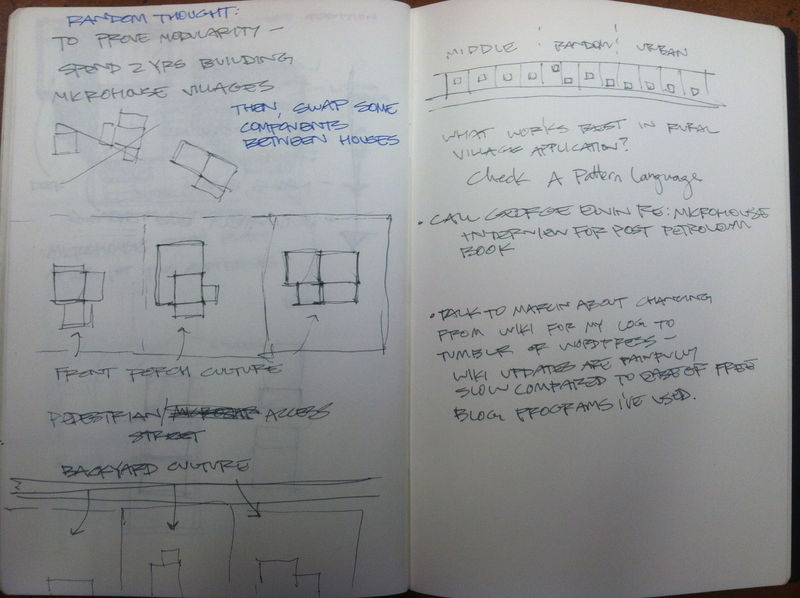 RANDOM THOUGHT:
TO PROVE MODULARITY -
SPEND 2 YRS BUILDING
MICROHOUSE VILLAGES
THEN, SWAP SOME
COMPONENTS
BETWEEN HOUSES
FRONT PORCH CULTURE
PEDESTRIAN/ ACCESS
STREET
BACKYARD CULTURE
MIDDLE 'RANDOM' URBAN
WHAT WORKS BEST IN RURAL
VILLAGE APPLICATION?
Check A Pattern Language
• CALL GEORGE ELVIN RE: MICROHOUSE
INTERVIEW FOR POST PETROLEUM
BOOK
• TALK TO MARCIN ABOUT CHANGING
FROM WIKI FOR MY LOG TO
TUMBLR OR WORDPRESS -
WIKI UPDATES ARE PAINFULLY
SLOW COMPARED TO EASE OF FREE
BLOG PROGRAMS I'VE USED.